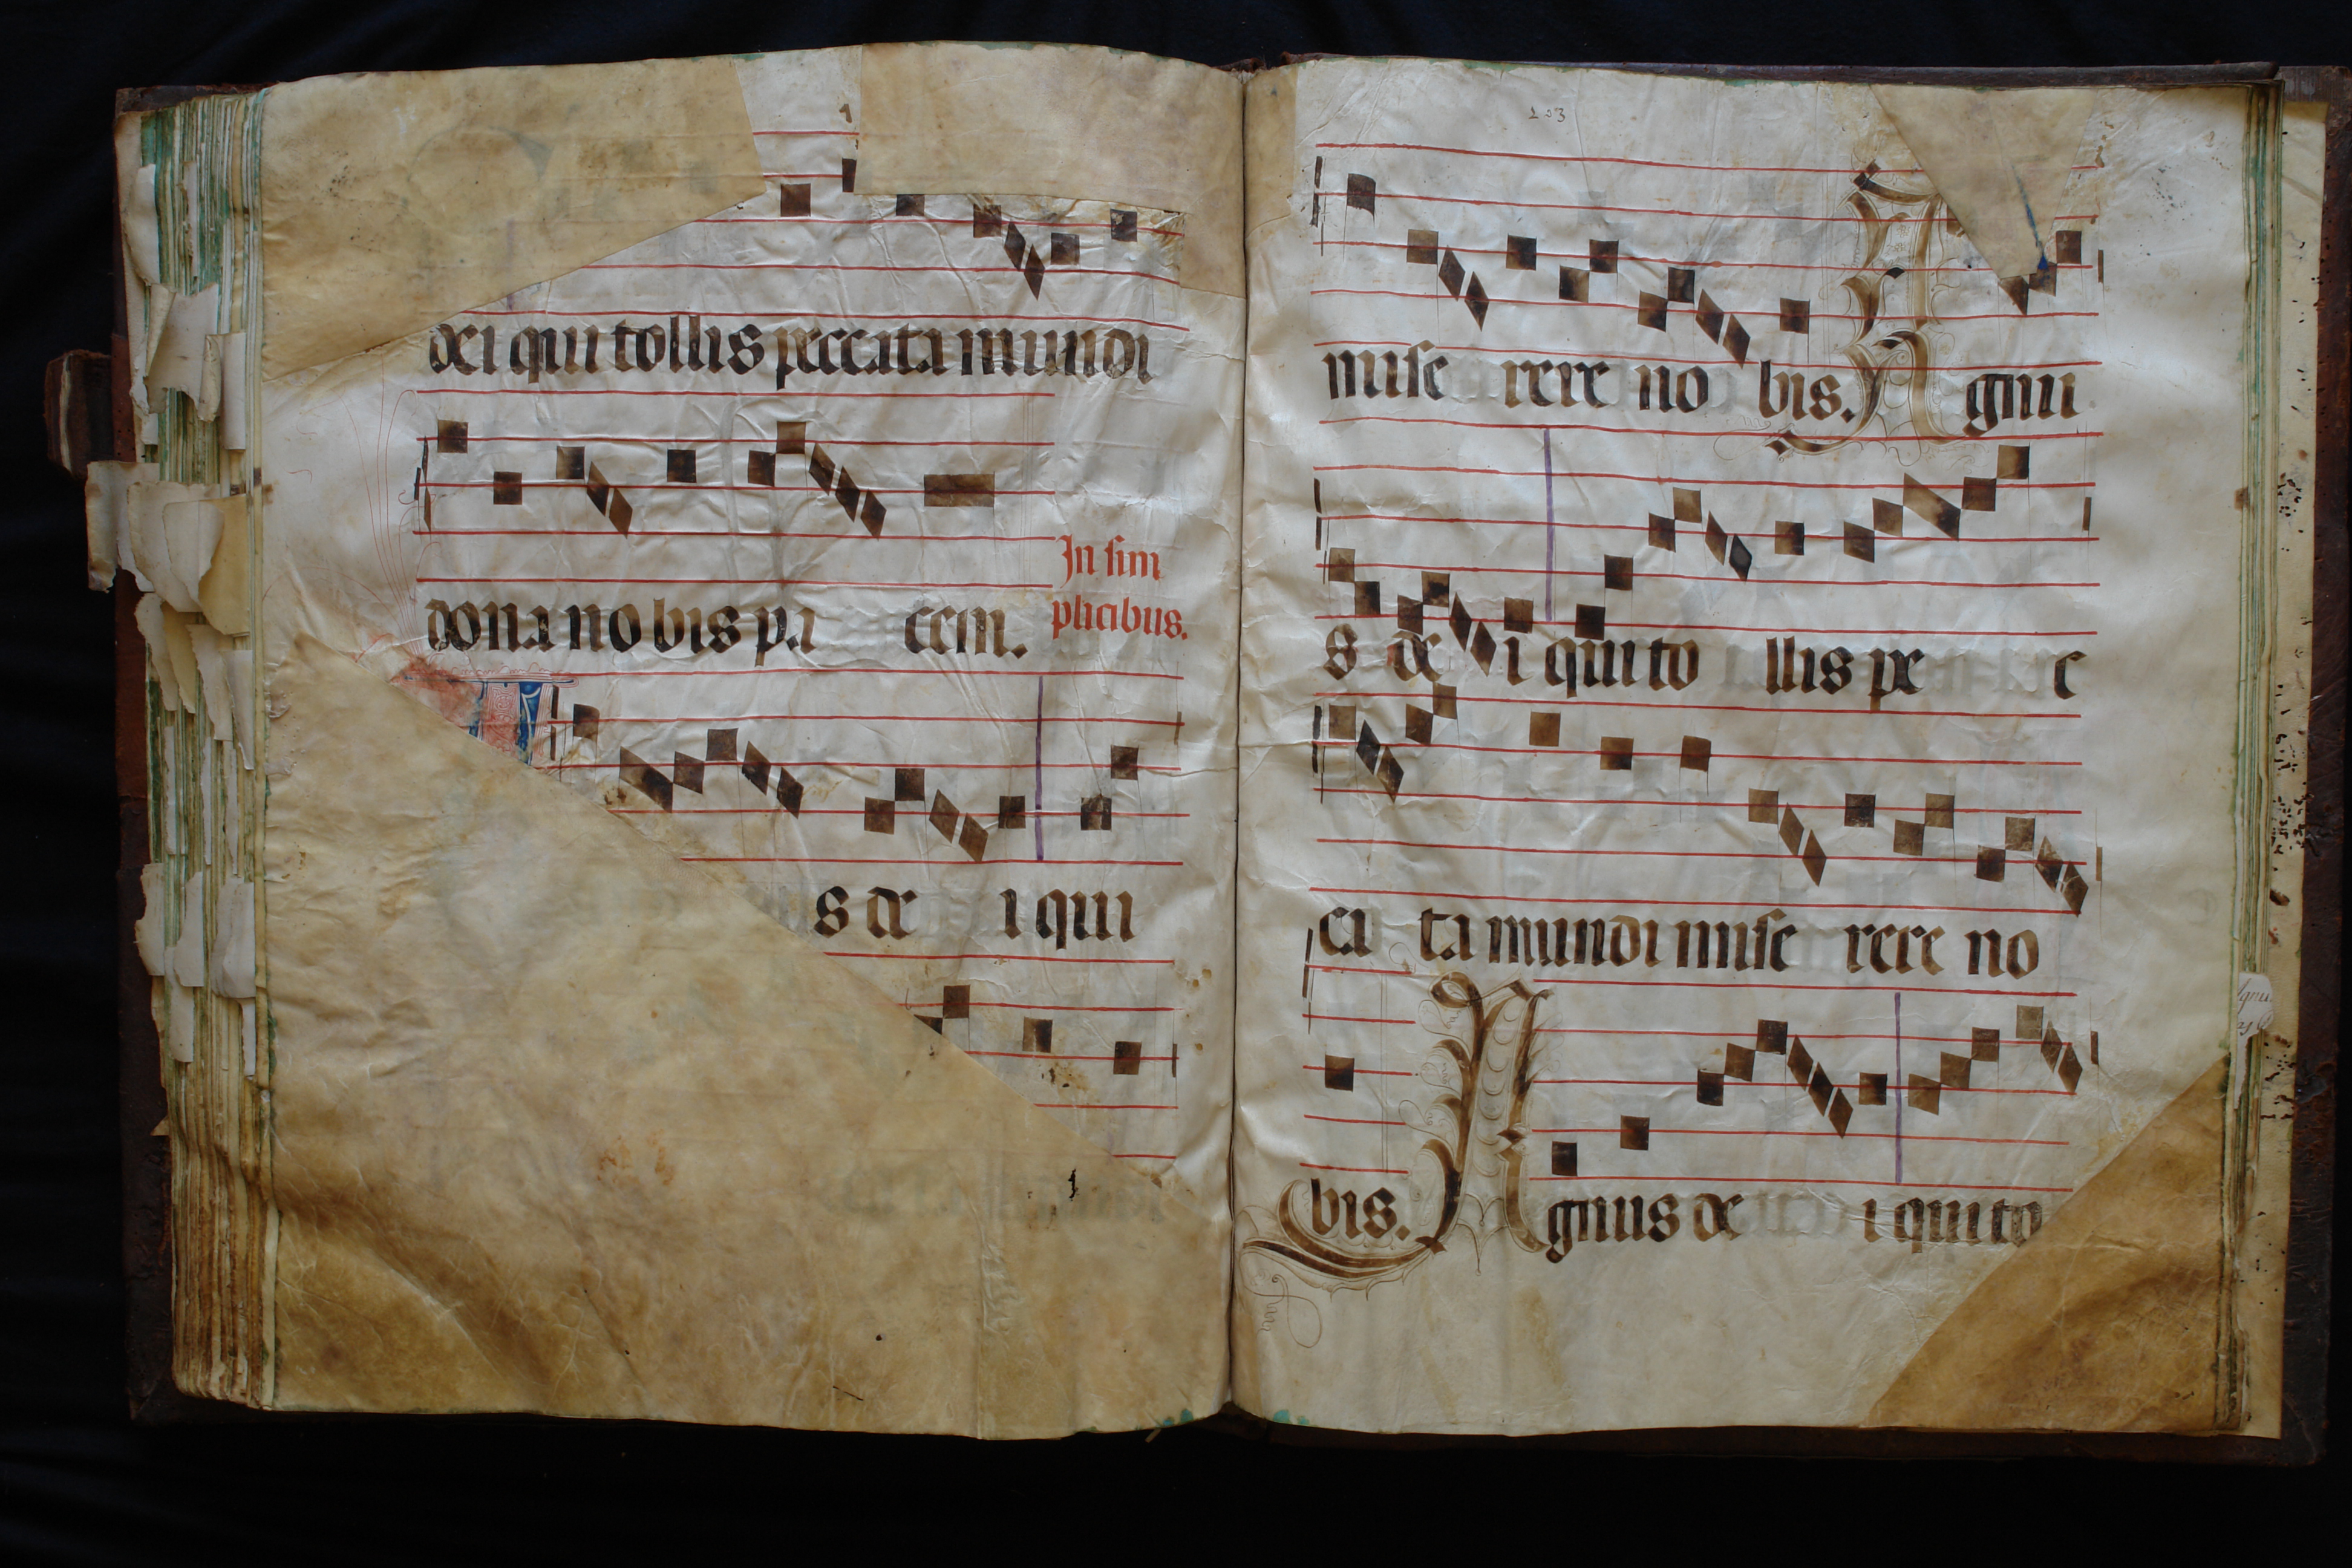 dei qui tollis peccata mundi
dona no bis pa cem.
In sim
plicibus.
s de i qui
203
mise rere no bis. A gnu
s de i qui to llis pe c
ca ta mundi mise rere no
bis. A gnus de i qui to